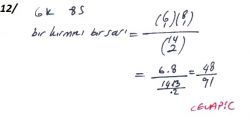 12/ 6K 8S
bir kırmızı bir sarı = (6 1)(8 1) / (14 2)
= 6.8 / 14.13 .2 = 48 / 91
CEVAP:C